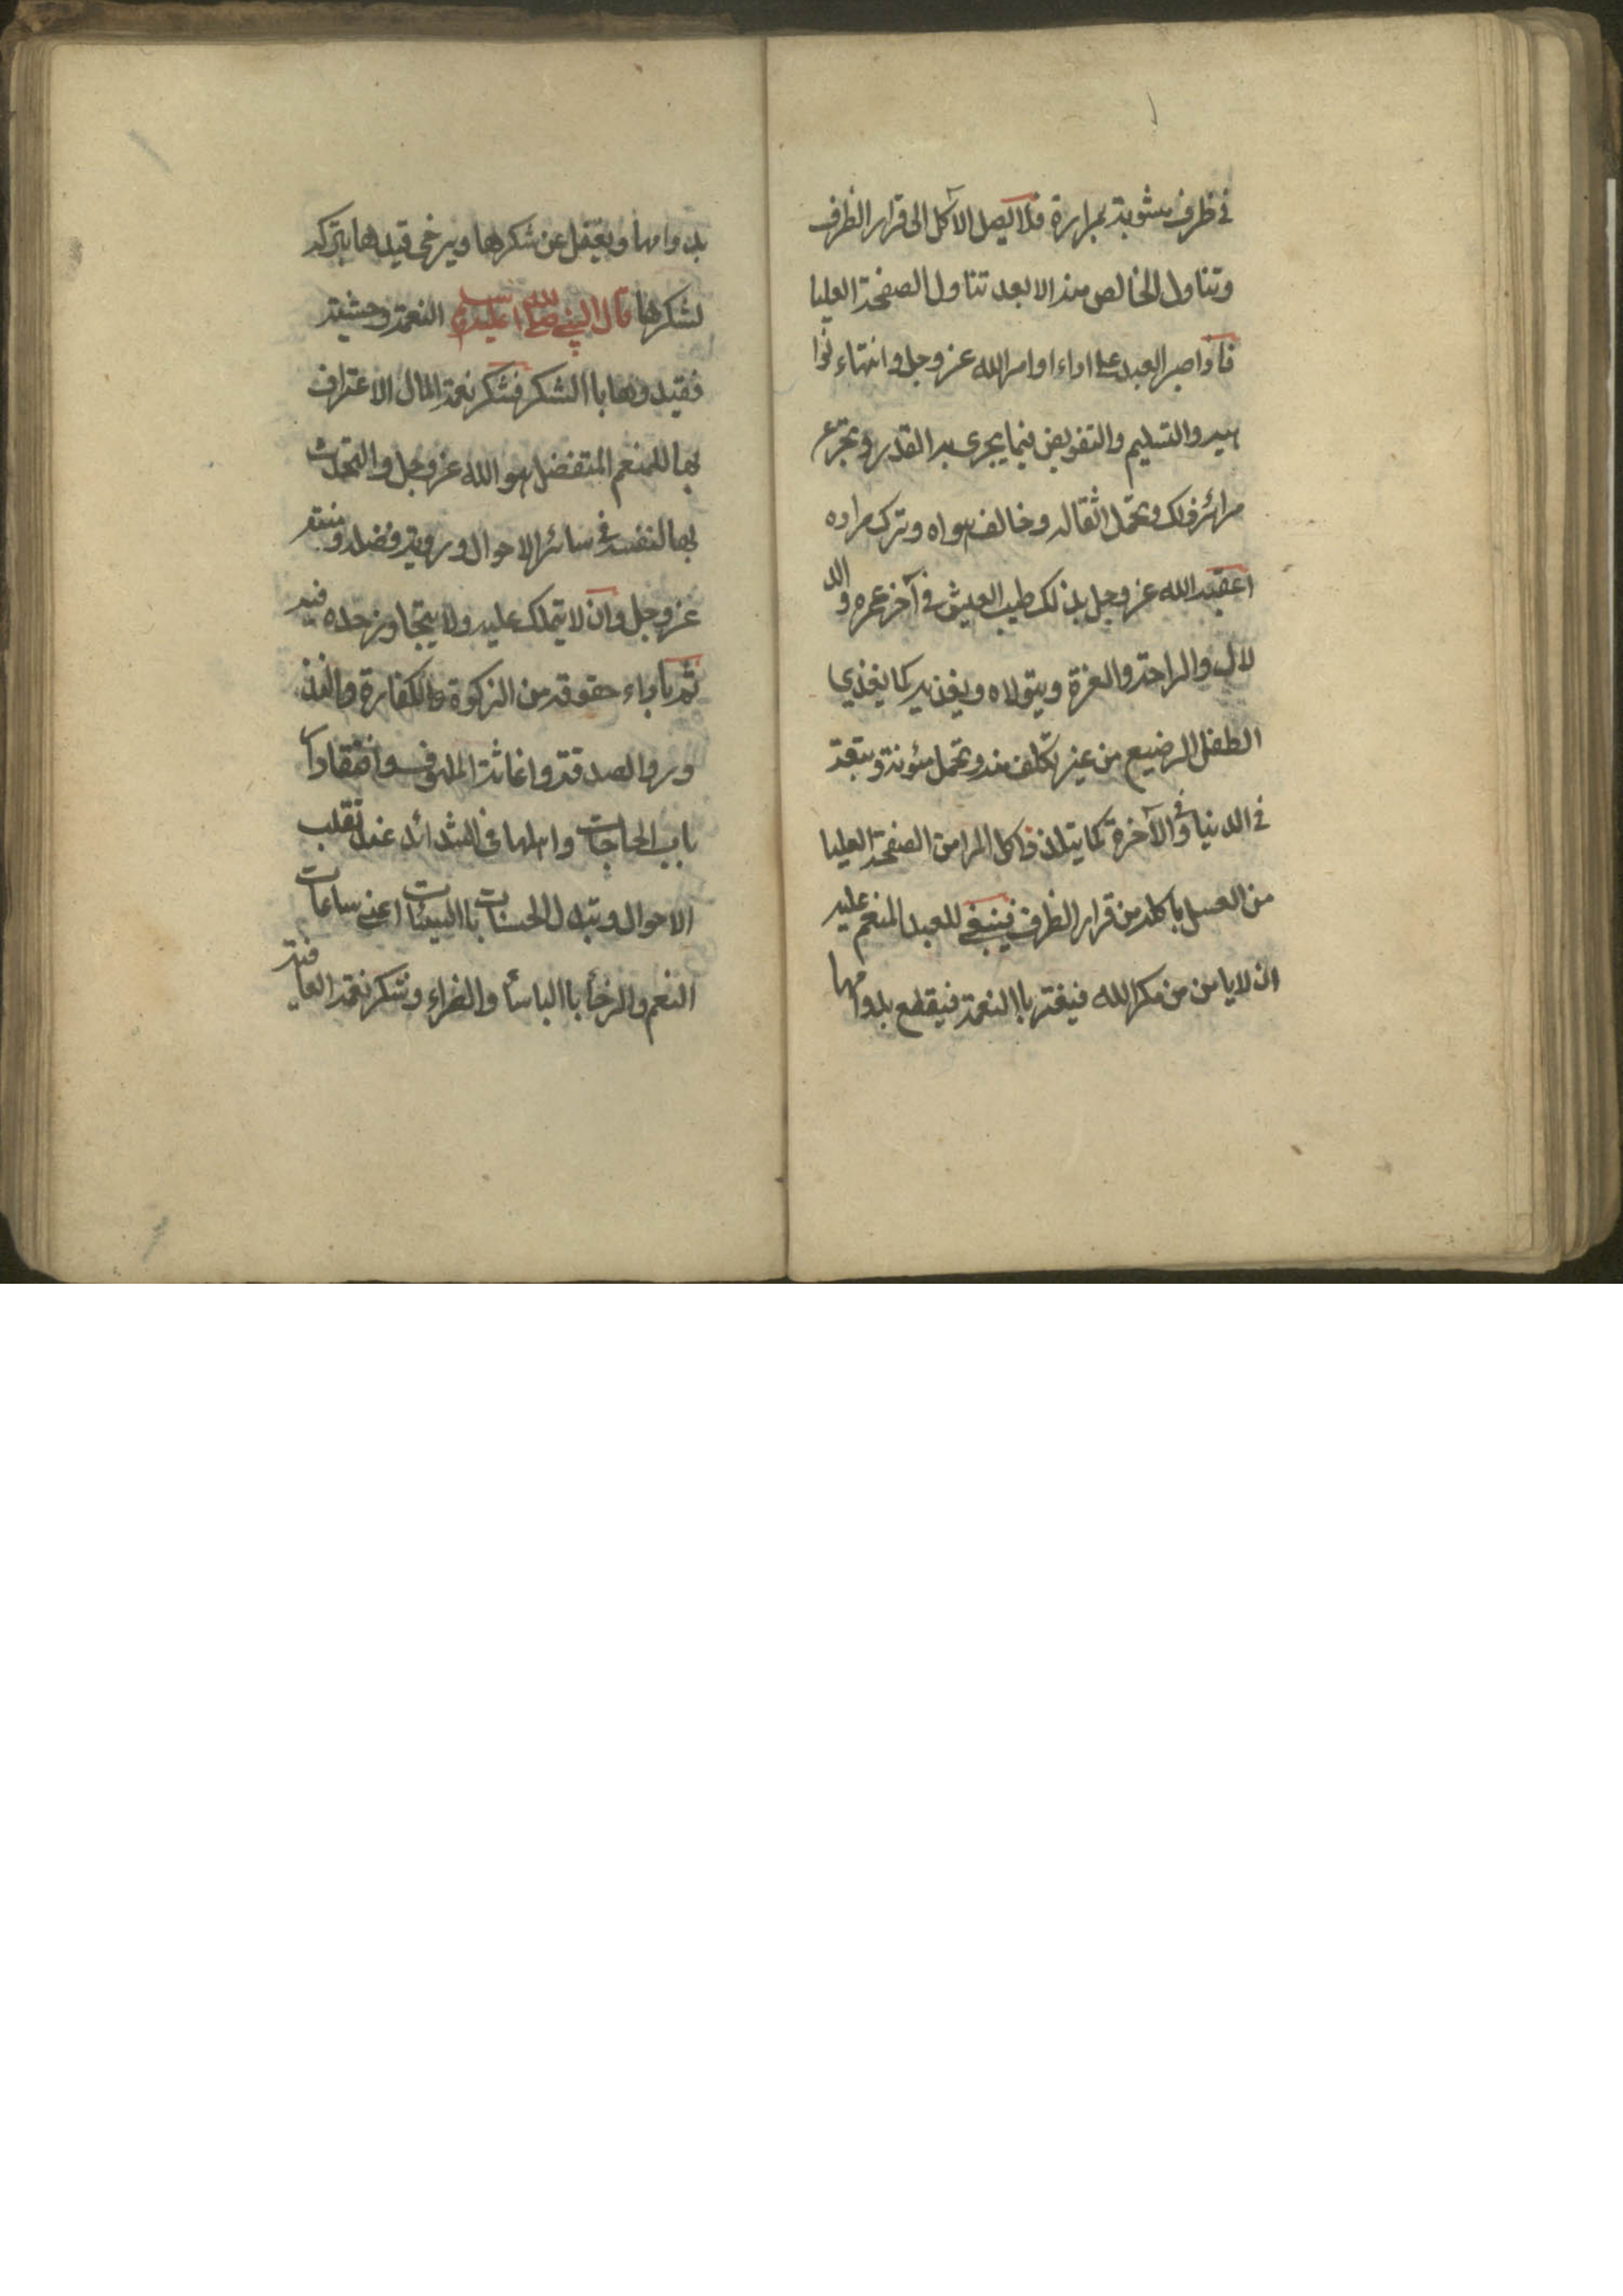 في ظرف مشوبة بمرارة فلا يصل الآكل الى قرار الظرف
وتناول الخالص منه الا بعد تناول الصفحة العليا
فاذا صبر العبد على اداء اوامر الله عز وجل وانتهاء نوا
هيه والتسليم والتفويض فيما يجرى به القدر وتجرع
مرائر ذلك وتحمل اثقاله وخالف هواه وترك مراده
اعقبه الله عز وجل بذلك طيب العيش في آخر عمره والد
لال والراحة والعزة ويتولاه ويغذيه كما يغذي
الطفل الرضيع من غير تكلف منه وتحمل مئونة وتبعة
في الدنيا وفي الآخرة كما يتلذذ آكل المر من الصفحة العليا
من العسل باكله من قرار الظرف فينبغي للعبد المنعم عليه
ان لا يامن من مكر الله فيغتر باالنعمة فيقطع بدوامها
بدوامها ويغفل عن شكرها ويرخى قيدها بتركه
لشكرها قال النبي صلى الله عليه وسلم النعمة وحشية
فقيدوها باالشكر فشكر نعمة المال الاعتراف
بها للمنعم المتفضل هو الله عز وجل والتحدث
بها لنفسه في سائر الاحوال ورؤية فضله ومنته
عز وجل وان لا يتملك عليه ولا يتجاوز حده فيه
ثم باداء حقوقه من الزكوة والكفارة والنذ
ور والصدقة واغاثة الملهوف وافتقاد ا
باب الحاجات واهلها في الشدائد عند تقلب
الاحوال وتبدل الحسنات باالسيئات اعني ساعات
النعم والرخأ باالباسأ والضراء وشكر نعمة العافية